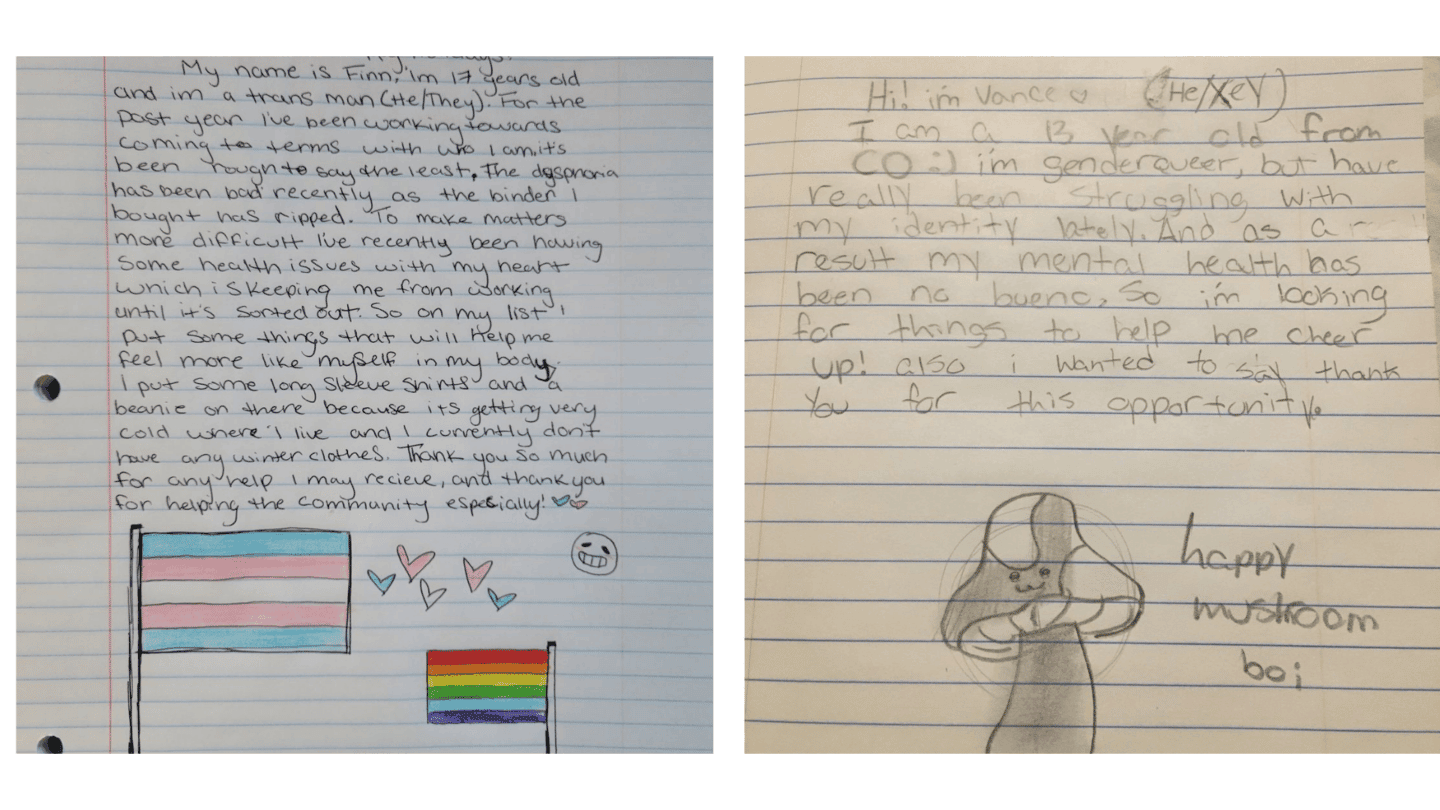 My name is Finn, im 17 years old
and im a trans man (He/They). For the
past year I've been working towards
coming to terms with who I am, it's
been rough to say the least. The dysphoria
has been bad recently as the binder I
bought has ripped. To make matters
more difficult I've recently been having
some health issues with my heart
which is keeping me from working
until it's sorted out. So on my list I
put some things that will help me
feel more like myself in my body.
I put some long sleeve shirts and a
beanie on there because its getting very
cold where I live and I currently don't
have any winter clothes. Thank you so much
for any help I may recieve, and thank you
for helping the community especially!
Hi! im Vance (He/Xey)
I am a 13 year old from
CO :) i'm genderqueer, but have
really been struggling with
my identity lately. And as a
result my mental health has
been no bueno, So i'm looking
for things to help me cheer
up! also i wanted to say thank
You for this opportunity.
happy
mushroom
boi